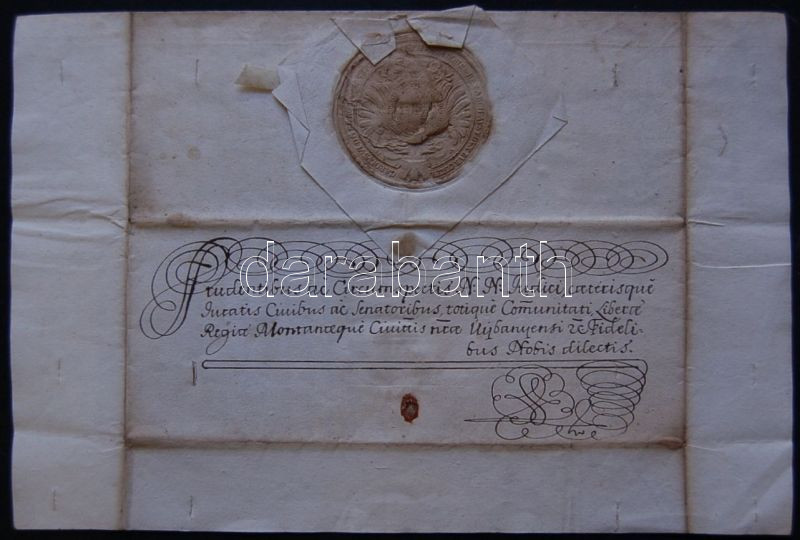 Prudentibus ac Circumspectis N. N. Judici, cæterisque
Juratis Civibus ac Senatoribus, totique Comunitati Liberæ
Regiæ Montanæque Civitis nræ Ujbanyensi &c Fideli-
bus Nobis dilectis.
darabanth